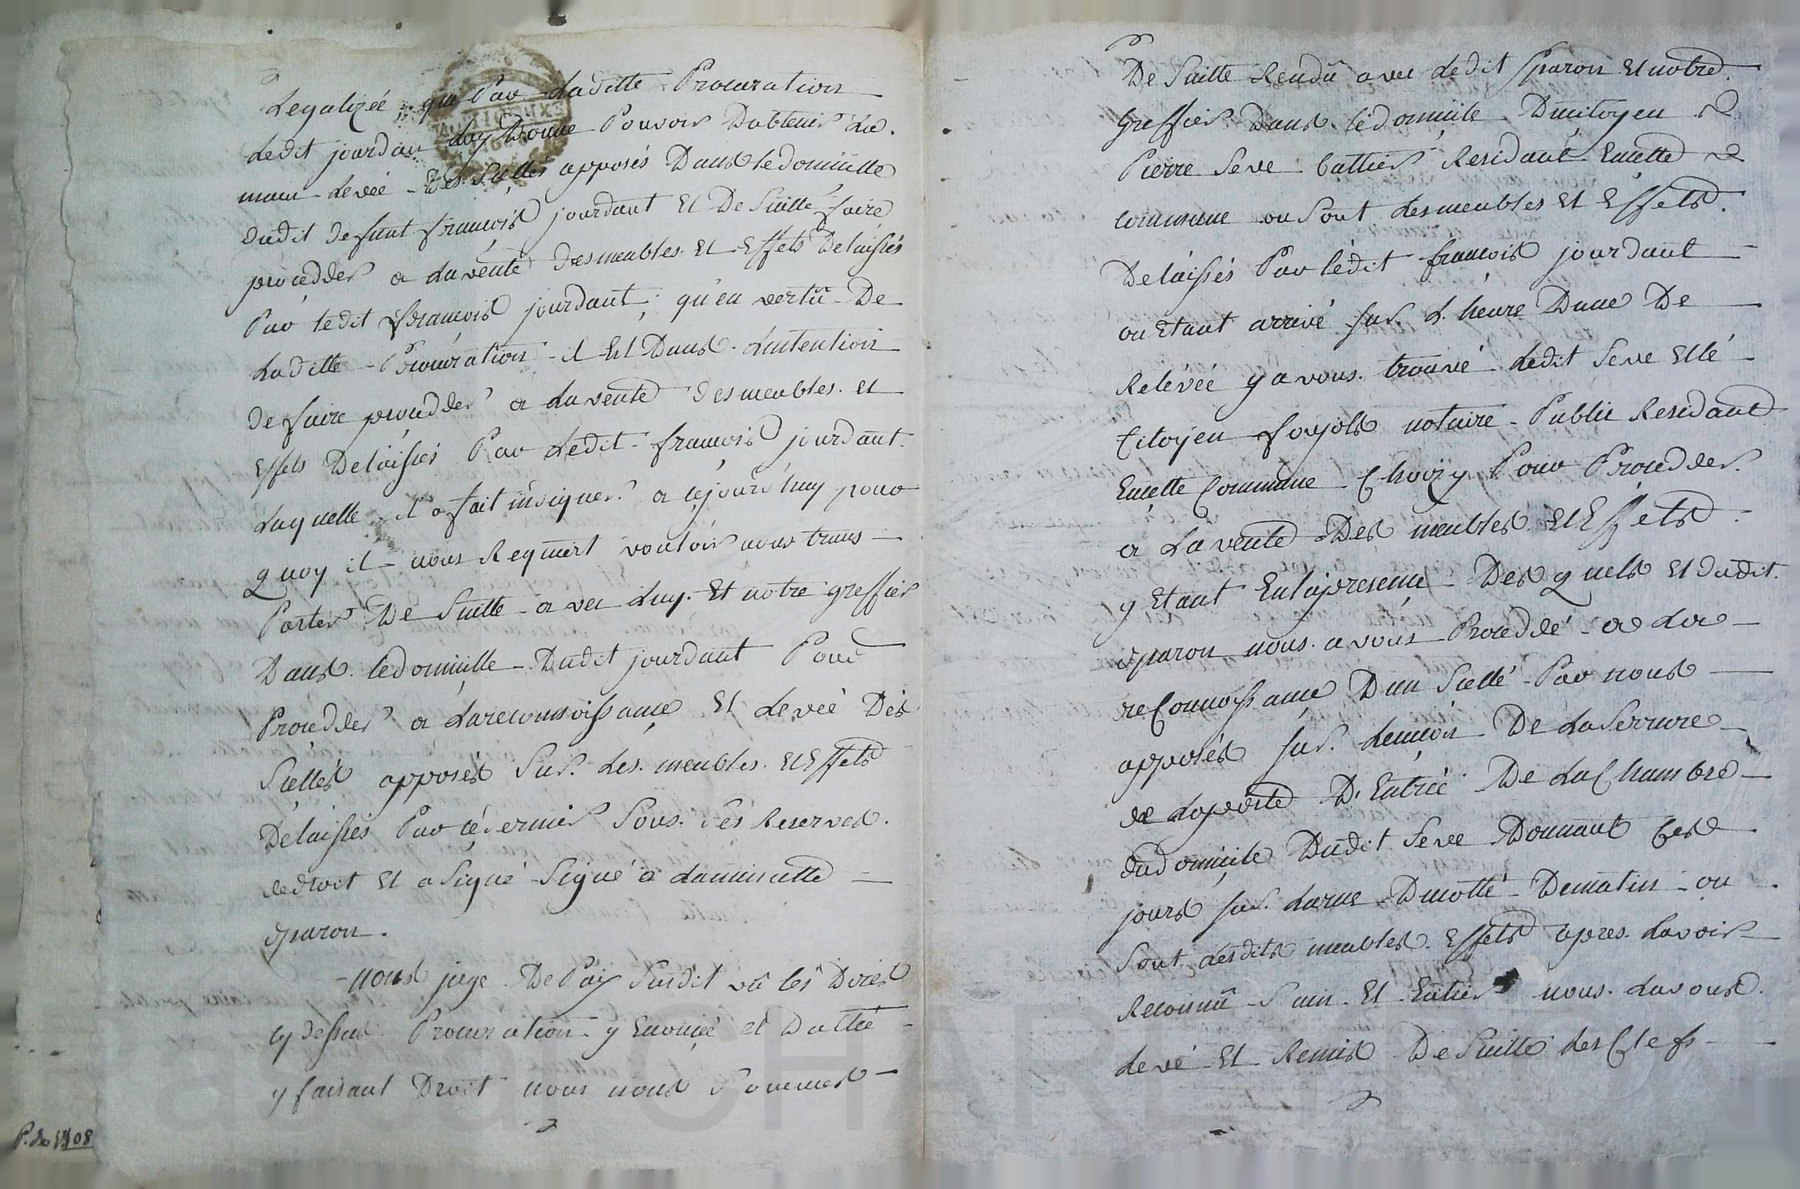 Legalizée, que Par Laditte Procuration
Ledit jourdan luy Donne Pouvoir Dobtenir La
main-levée des Scellés apposés Dans ledomicille
dudit defunt françois jourdant Et De Suitte faire
procedder a Lavente Desmeubles Et Effets Delaissés
Par ledit françois jourdant, qu'en vertu De
Laditte Procuration il Est Dans Lintention
de faire procedder a Lavente Desmeubles et
Effets Delaissés Par Ledit françois jourdant
Laquelle il a fait insiquer a cejourd'huy pour
quoy il nous Requiert vouloir nous trans
Porter De Suitte avec Luy Et notre greffier
Dans ledomicille Dudit jourdant Pour
Procedder a Lareconnoissance Et levée Dés
Scéllés apposés Sur Les meubles Et Effets
Délaissés Par cé dernier Sous Sés Reserves
dedroit Et a Signé Signé a Laminutte
sparon.
nous juge De Paix Susdit vû lés Dires
cy dessus Procuration y Enoncée et Dattée
y faisant Droit nous nous Sommes
P. de 1808
De Suitte Rendû avec Ledit Sparon Et notre
Greffier Dans lédomicile Ducitoyen
Pierre Seve Résidant Encette
commune ou Sont Lesmeubles Et Effets
Delaissés Par lédit françois jourdant
ou Etant arrivé Sur L'héure Dune De
Relévée y avons trouvé Ledit Seve Et lé
Citoyen foujols notaire Public Residant
Encette Commune Choizy Pour Procedder
a Lavente Des meubles Et Effets
y Etant Enlapresence Des quels Et dudit
sparon nous avons Proceddé a La
reconnoissance Dun Scellé Par nous
apposés Sur Lentrée De LaSerrure
de Laporte D'Entrée De LaChambre
dudomicile Dudit Seve Donnant Ces
jours Sur Larue Ducotté Dematin ou
Sont Lesdits meubles Effets apres Lavoir
Reconnû Sain Et Entier nous Lavons
levé Et Remis De Suitte Les Clefs